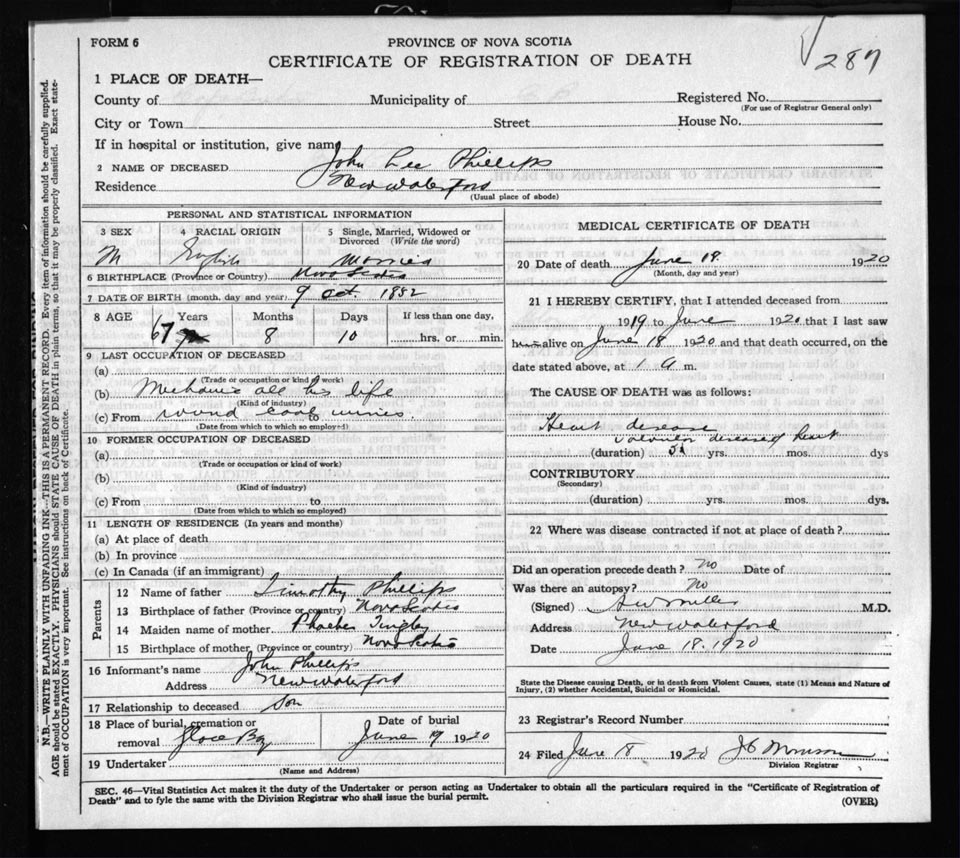 FORM 6
PROVINCE OF NOVA SCOTIA
CERTIFICATE OF REGISTRATION OF DEATH
287
1 PLACE OF DEATH—
County of Municipality of C B Registered No.
(For use of Registrar General only)
City or Town Street House No.
If in hospital or institution, give name
2 NAME OF DECEASED John Lee Phillips
Residence New Waterford
(Usual place of abode)
PERSONAL AND STATISTICAL INFORMATION
3 SEX 4 RACIAL ORIGIN 5 Single, Married, Widowed or Divorced (Write the word)
M English Married
6 BIRTHPLACE (Province or Country) Nova Scotia
7 DATE OF BIRTH (month, day and year) 9 Oct. 1852
8 AGE Years Months Days If less than one day,
67 8 10 hrs. or min.
9 LAST OCCUPATION OF DECEASED
(a)
(Trade or occupation or kind of work)
(b) Mechanic all his life
(Kind of industry)
(c) From round coal mines.
(Date from which to which so employed)
10 FORMER OCCUPATION OF DECEASED
(a)
(Trade or occupation or kind of work)
(b)
(Kind of industry)
(c) From to
(Date from which to which so employed)
11 LENGTH OF RESIDENCE (In years and months)
(a) At place of death
(b) In province
(c) In Canada (if an immigrant)
Parents
12 Name of father Timothy Phillips
13 Birthplace of father (Province or country) Nova Scotia
14 Maiden name of mother Phoebe Tingley
15 Birthplace of mother (Province or country) Nova Scotia
16 Informant's name John Phillips
Address New Waterford
17 Relationship to deceased Son
18 Place of burial, cremation or removal Glace Bay Date of burial June 19 1920
19 Undertaker
(Name and Address)
MEDICAL CERTIFICATE OF DEATH
20 Date of death June 18. 1920
(Month, day and year)
21 I HEREBY CERTIFY, that I attended deceased from
1919 to June 1920 that I last saw
h alive on June 18 1920 and that death occurred, on the
date stated above, at 1 a m.
The CAUSE OF DEATH was as follows:
Heart disease
diseased heart
(duration) yrs. mos. dys
CONTRIBUTORY
(Secondary)
(duration) yrs. mos. dys.
22 Where was disease contracted if not at place of death?
Did an operation precede death? no Date of
Was there an autopsy? no
(Signed) M.D.
Address New Waterford
Date June 18. 1920
State the Disease causing Death, or in death from Violent Causes, state (1) Means and Nature of
Injury, (2) whether Accidental, Suicidal or Homicidal.
23 Registrar's Record Number
24 Filed June 8 1920
Division Registrar
SEC. 46—Vital Statistics Act makes it the duty of the Undertaker or person acting as Undertaker to obtain all the particulars required in the "Certificate of Registration of
Death" and to fyle the same with the Division Registrar who shall issue the burial permit.
(OVER)
N.B.—WRITE PLAINLY WITH UNFADING INK—THIS IS A PERMANENT RECORD. Every item of information should be carefully supplied.
AGE should be stated EXACTLY. PHYSICIANS should STATE CAUSE OF DEATH in plain terms, so that it may be properly classified. Exact state-
ment of OCCUPATION is very important. See instructions on back of Certificate.